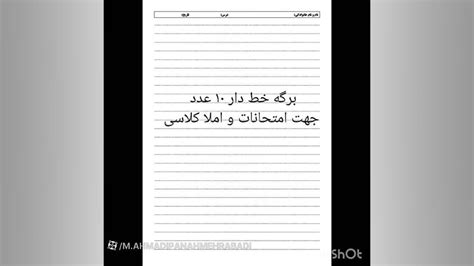 نام و نام خانوادگی: درس: تاریخ:
برگه خط دار ۱۰ عدد
جهت امتحانات و املا کلاسی
/M.AHMADIPANAHMEHRABADI
ShOt